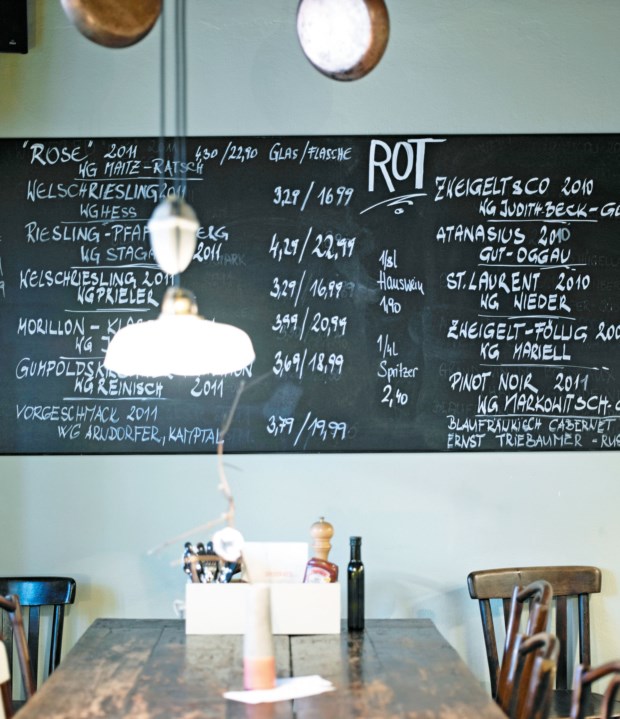 "ROSE" 2011 4,30/22,90 GLAS/FLASCHE
WG MAITZ-RATSCH
WELSCHRIESLING 2011 3,29/16,99
WG HESS
RIESLING-PFAFF BERG 4,29/22,99
WG 2011
WELSCHRIESLING 2011 3,29/16,99
WG PRIELER
MORILLON - 3,99/20,99
WG
3,69/18,99
WG REINISCH 2011
VORGESCHMACK 2011 3,79/19,99
WG ARNDORFER, KAMPTAL
1/8l
Hauswein
1,90
1/4l
Spritzer
2,40
ROT
ZWEIGELT&CO 2010
WG JUDITH-BECK-GO
ATANASIUS 2010
GUT-OGGAU
ST. LAURENT 2010
WG NIEDER
ZWEIGELT-FÖLLIG 200
WG MARIELL
PINOT NOIR 2011
WG MARKOWITSCH-G
BLAUFRÄNKISCH CABERNET
ERNST TRIEBAUMER - RUS